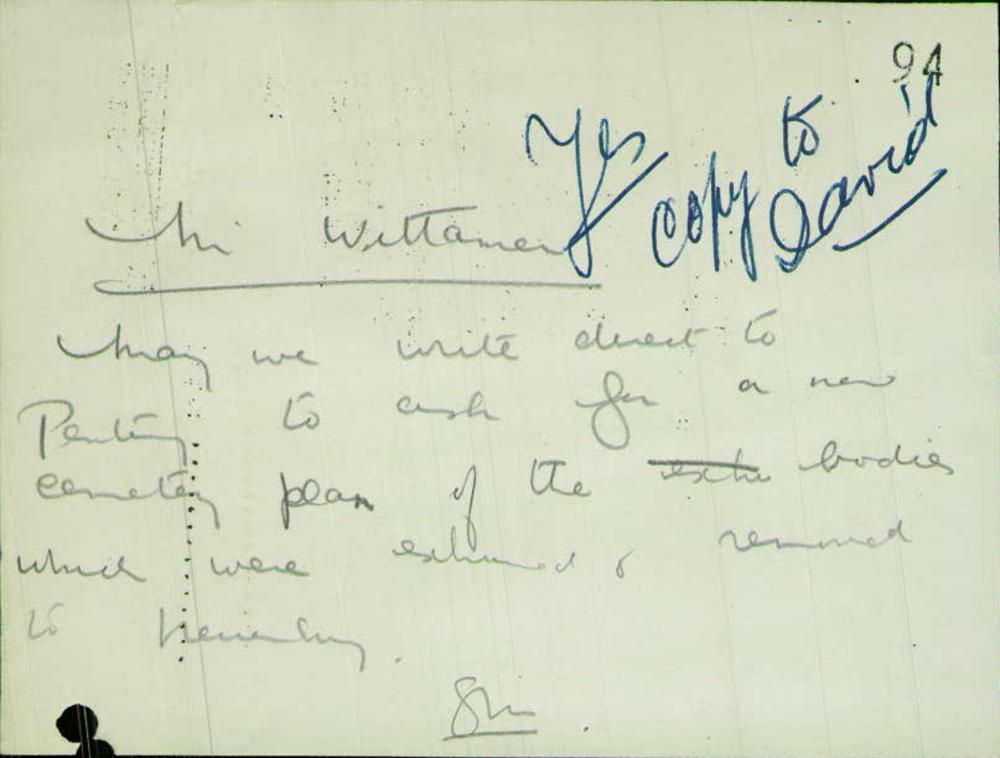 94
Yes
copy to
David
Mr Wittamer
May we write direct to
to ask for a new
cemetery plan of the bodies
which were exhumed & removed
to